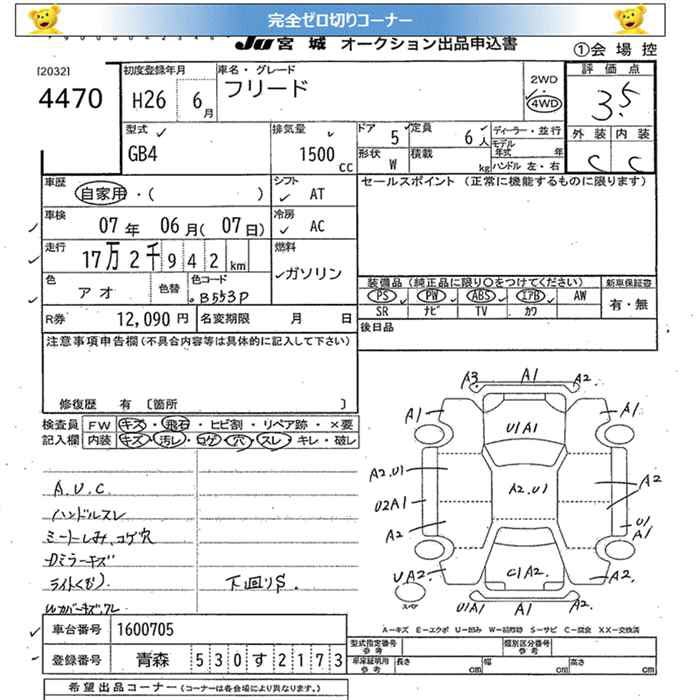 完全ゼロ切りコーナー
JU 宮城 オークション出品申込書
①会場控
[2032]
4470
初度登録年月
H26 6月
車名・グレード
フリード
2WD
4WD
評価点
3.5
外装 内装
C C
型式
GB4
排気量
1500 cc
ドア 5
定員 6人
形状 W
積載 kg
ディーラー・並行
モデル年式 年
ハンドル 左・右
車歴
自家用・( )
シフト
AT
セールスポイント (正常に機能するものに限ります)
車検
07年 06月(07日)
冷房
AC
走行
17万2千942km
燃料
ガソリン
色
アオ
色替
色コード
B553P
装備品 (純正品に限り○をつけてください)
新車保証書
PS PW ABS エアB AW
SR ナビ TV カワ
有・無
R券 12,090円
名変期限 月 日
後日品
注意事項申告欄(不具合内容等は具体的に記入して下さい)
修復歴 有 〔箇所 〕
検査員記入欄
FW キズ・飛石・ヒビ割・リペア跡・×要
内装 キズ・汚レ・コゲ・穴・スレ・キレ・破レ
A.U.C
ハンドルスレ
シートしみ、コゲ穴
ライトくもり
下回りS.
A3 A1 A2
A1 A1
U1A1
A2.U1 A2.U1 A2
U2A1
A2 U1 A1
UA2. C1A2. A2.
U1A1 A1 A2.
スペア
A－キズ E－エクボ U－凹み W－補修跡 S－サビ C－腐食 XX－交換済
車台番号 1600705
登録番号 青森 530す2173
型式指定番号 参考
類別区分番号 参考
車庫証明用 参考
長さ cm
幅 cm
高さ cm
希望出品コーナー (コーナーは各会場により異なります。)